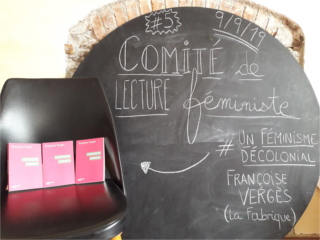 #5
9/9/19
COMITÉ de
LECTURE féministe
# UN FÉMINISME
DÉCOLONIAL
FRANÇOISE
VERGÈS
(La Fabrique)